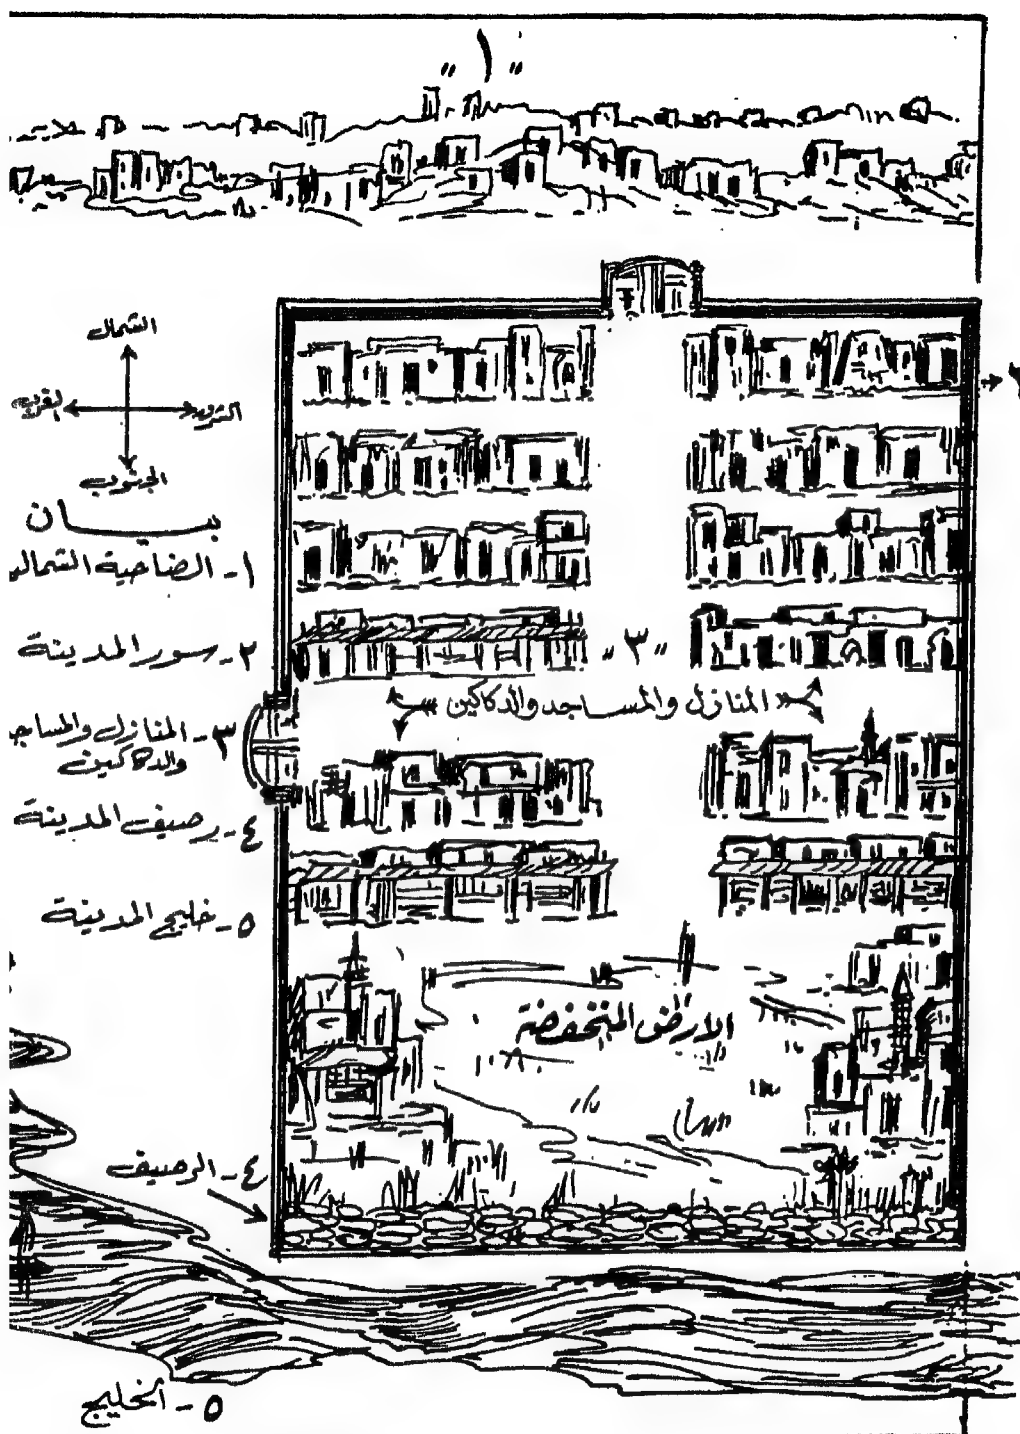 "١"
الشمال
الغرب
الشرق
الجنوب
بيان
١- الضاحية الشمالي
٢- سور المدينة
٣- المنازل والمساجد
والدكاكين
٤- رصيف المدينة
٥- خليج المدينة
"٣"
المنازل والمساجد والدكاكين
الارض المنخفضة
٤- الرصيف
٥- الخليج